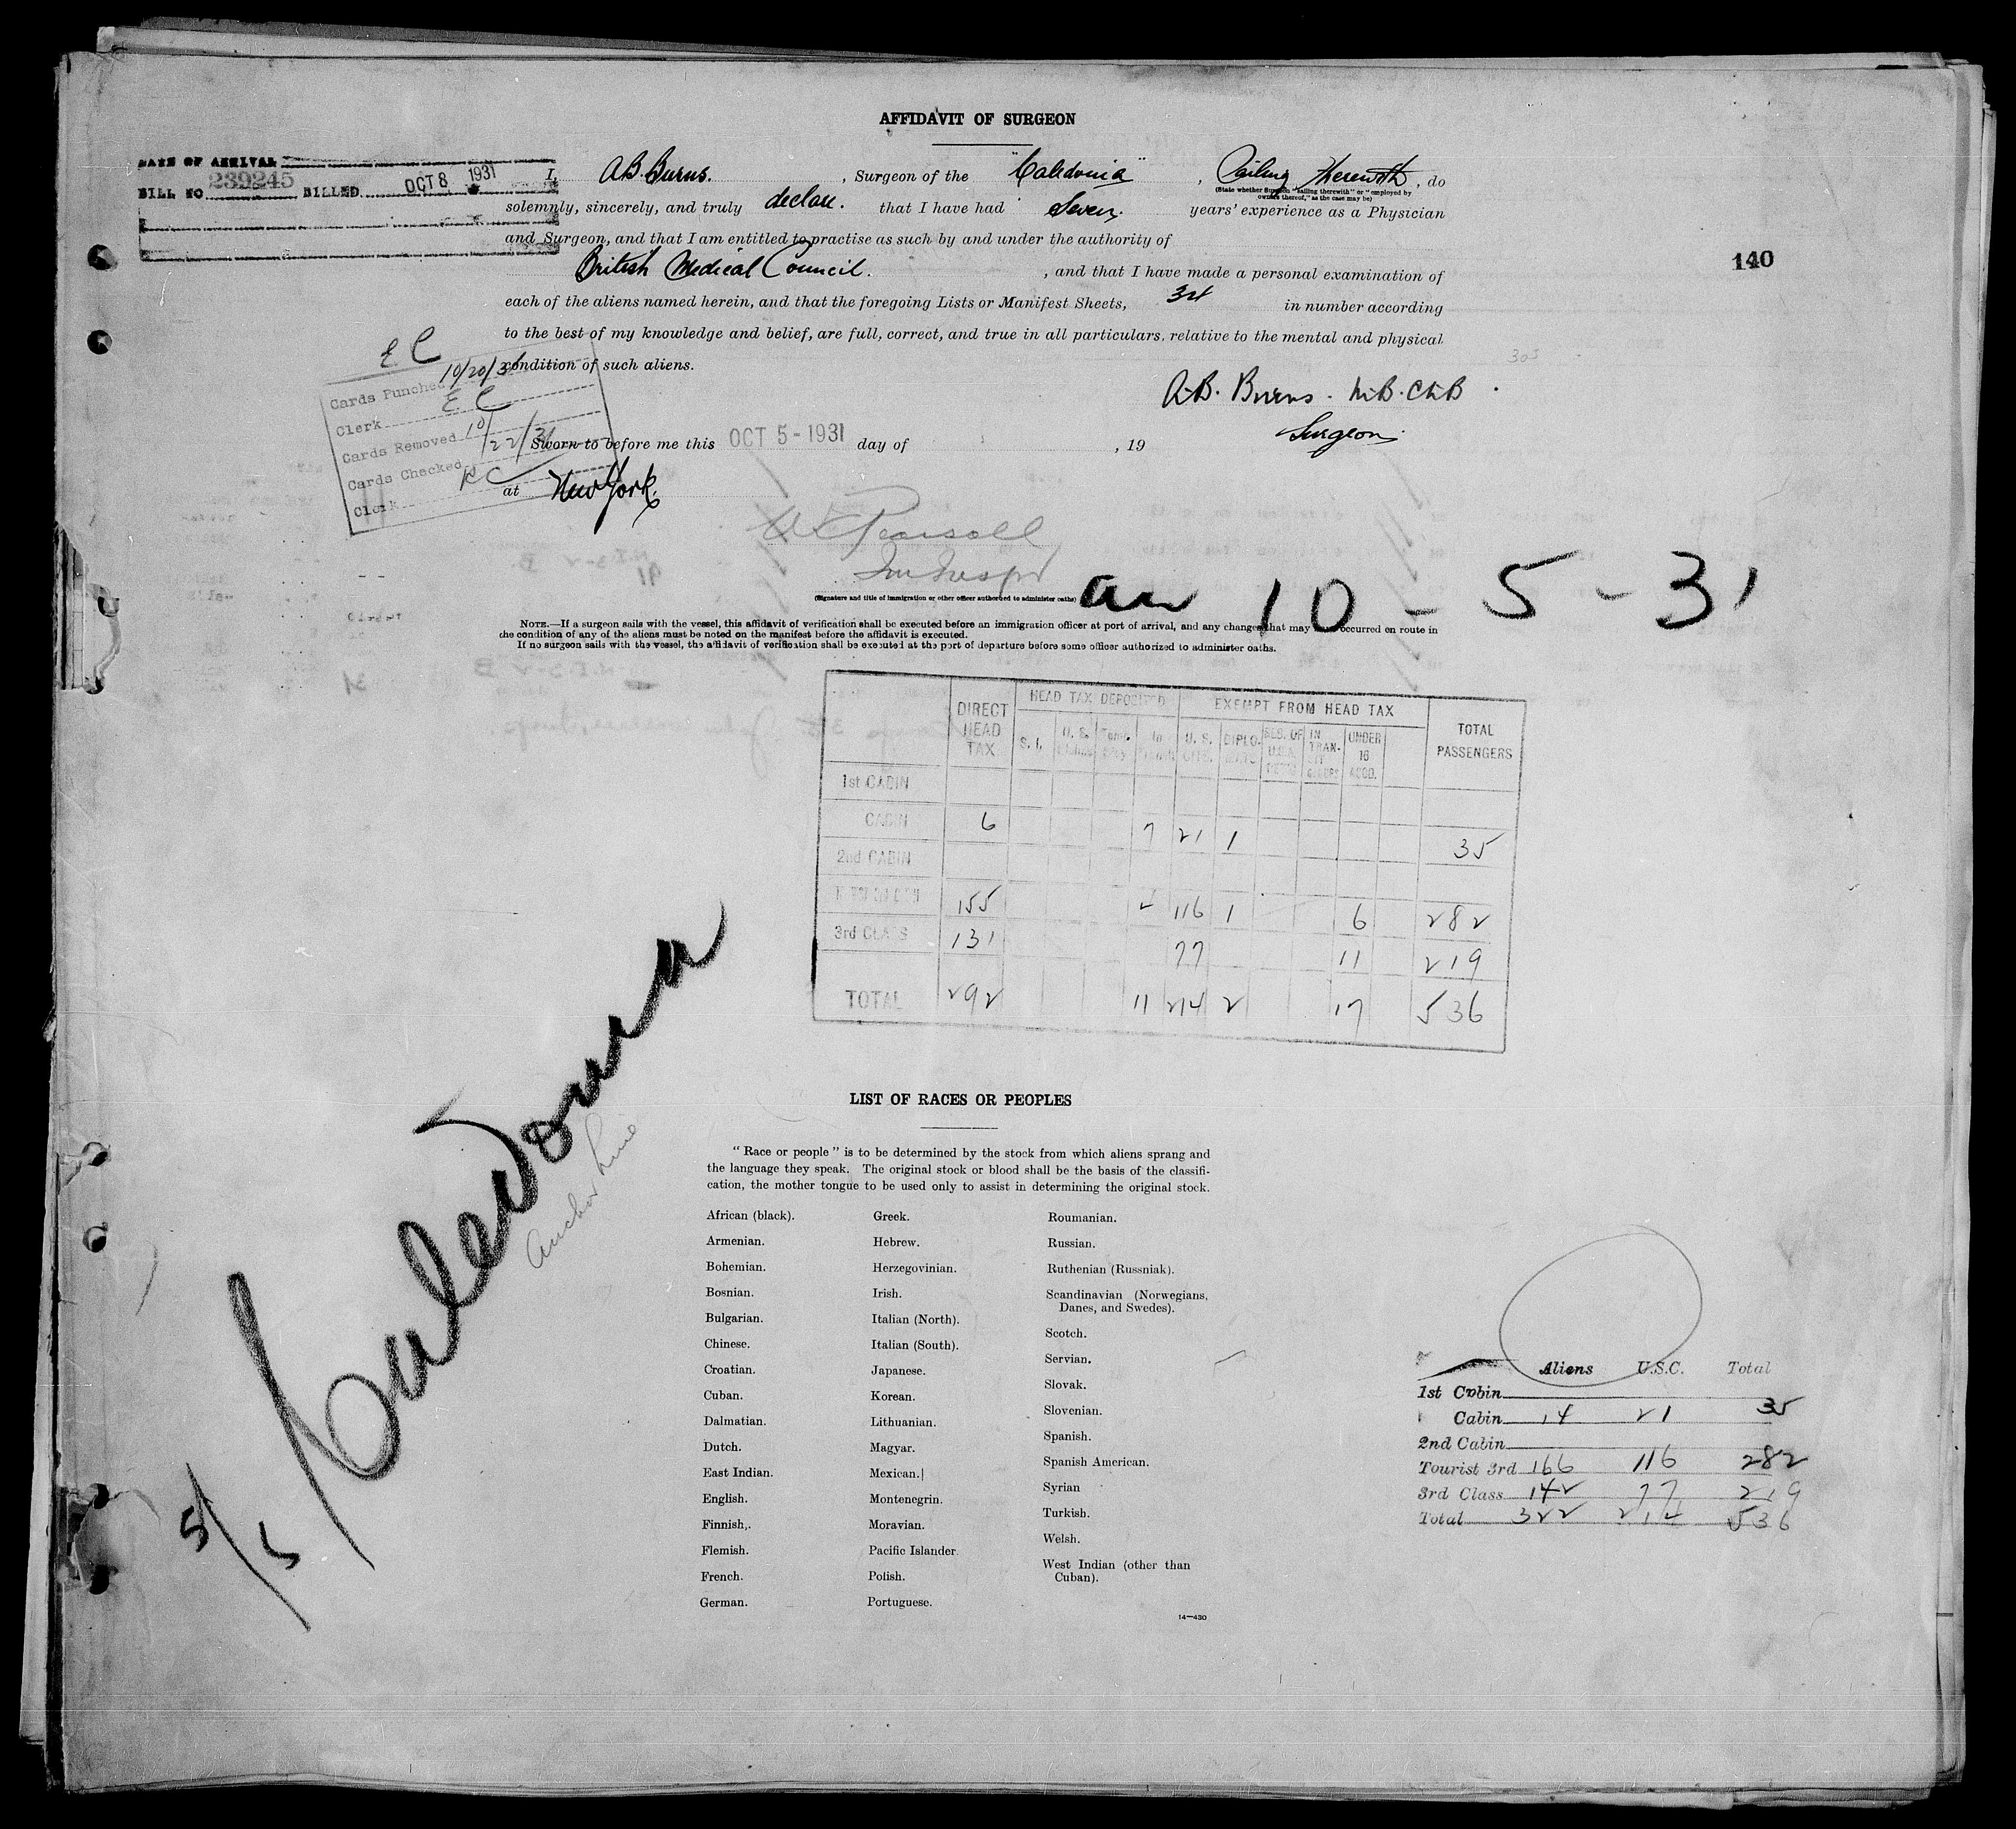 AFFIDAVIT OF SURGEON
DATE OF ARRIVAL
BILL NO. 239245 BILLED OCT 8 1931
I, A.B. Burns. , Surgeon of the "Caledonia" , Sailing Therewith , do
(State whether Surgeon "sailing therewith" or "employed by
owners thereof," as the case may be)
solemnly, sincerely, and truly declare. that I have had Seven. years' experience as a Physician
and Surgeon, and that I am entitled to practise as such by and under the authority of
British Medical Council. , and that I have made a personal examination of
140
each of the aliens named herein, and that the foregoing Lists or Manifest Sheets, in number according
to the best of my knowledge and belief, are full, correct, and true in all particulars, relative to the mental and physical
condition of such aliens.
305
E C
Cards Punched 10/20/31
Clerk E C
Cards Removed 10/22/31
Cards Checked
Clerk K C
A.B. Burns. M.B. Ch.B
Surgeon
Sworn to before me this OCT 5 - 1931 day of , 19
at New York.
Pearsall
Im Inspr
(Signature and title of immigration or other officer authorized to administer oaths)
arr 10 - 5 - 31
NOTE.—If a surgeon sails with the vessel, this affidavit of verification shall be executed before an immigration officer at port of arrival, and any changes that may occurred on route in
the condition of any of the aliens must be noted on the manifest before the affidavit is executed.
If no surgeon sails with the vessel, the affidavit of verification shall be executed at the port of departure before some officer authorized to administer oaths.
DIRECT HEAD TAX HEAD TAX DEPOSITED EXEMPT FROM HEAD TAX TOTAL PASSENGERS
S. I. U. S. In U. S. CITS. DIPLO- MATS RES. OF U.S.A. IN TRAN- SIT UNDER 16 ACCD.
1st CABIN
CABIN 6 7 21 1 35
2nd CABIN
155 2 116 1 6 282
3rd CLASS 131 77 11 219
TOTAL 292 11 214 2 17 536
Caledonia
Anchor Line
5/5
LIST OF RACES OR PEOPLES
"Race or people" is to be determined by the stock from which aliens sprang and
the language they speak. The original stock or blood shall be the basis of the classifi-
cation, the mother tongue to be used only to assist in determining the original stock.
African (black).
Armenian.
Bohemian.
Bosnian.
Bulgarian.
Chinese.
Croatian.
Cuban.
Dalmatian.
Dutch.
East Indian.
English.
Finnish.
Flemish.
French.
German.
Greek.
Hebrew.
Herzegovinian.
Irish.
Italian (North).
Italian (South).
Japanese.
Korean.
Lithuanian.
Magyar.
Mexican.
Montenegrin.
Moravian.
Pacific Islander.
Polish.
Portuguese.
Roumanian.
Russian.
Ruthenian (Russniak).
Scandinavian (Norwegians,
Danes, and Swedes).
Scotch.
Servian.
Slovak.
Slovenian.
Spanish.
Spanish American.
Syrian
Turkish.
Welsh.
West Indian (other than
Cuban).
14—430
Aliens U.S.C. Total
1st Cabin
Cabin 14 21 35
2nd Cabin
Tourist 3rd 166 116 282
3rd Class 142 77 219
Total 322 214 536